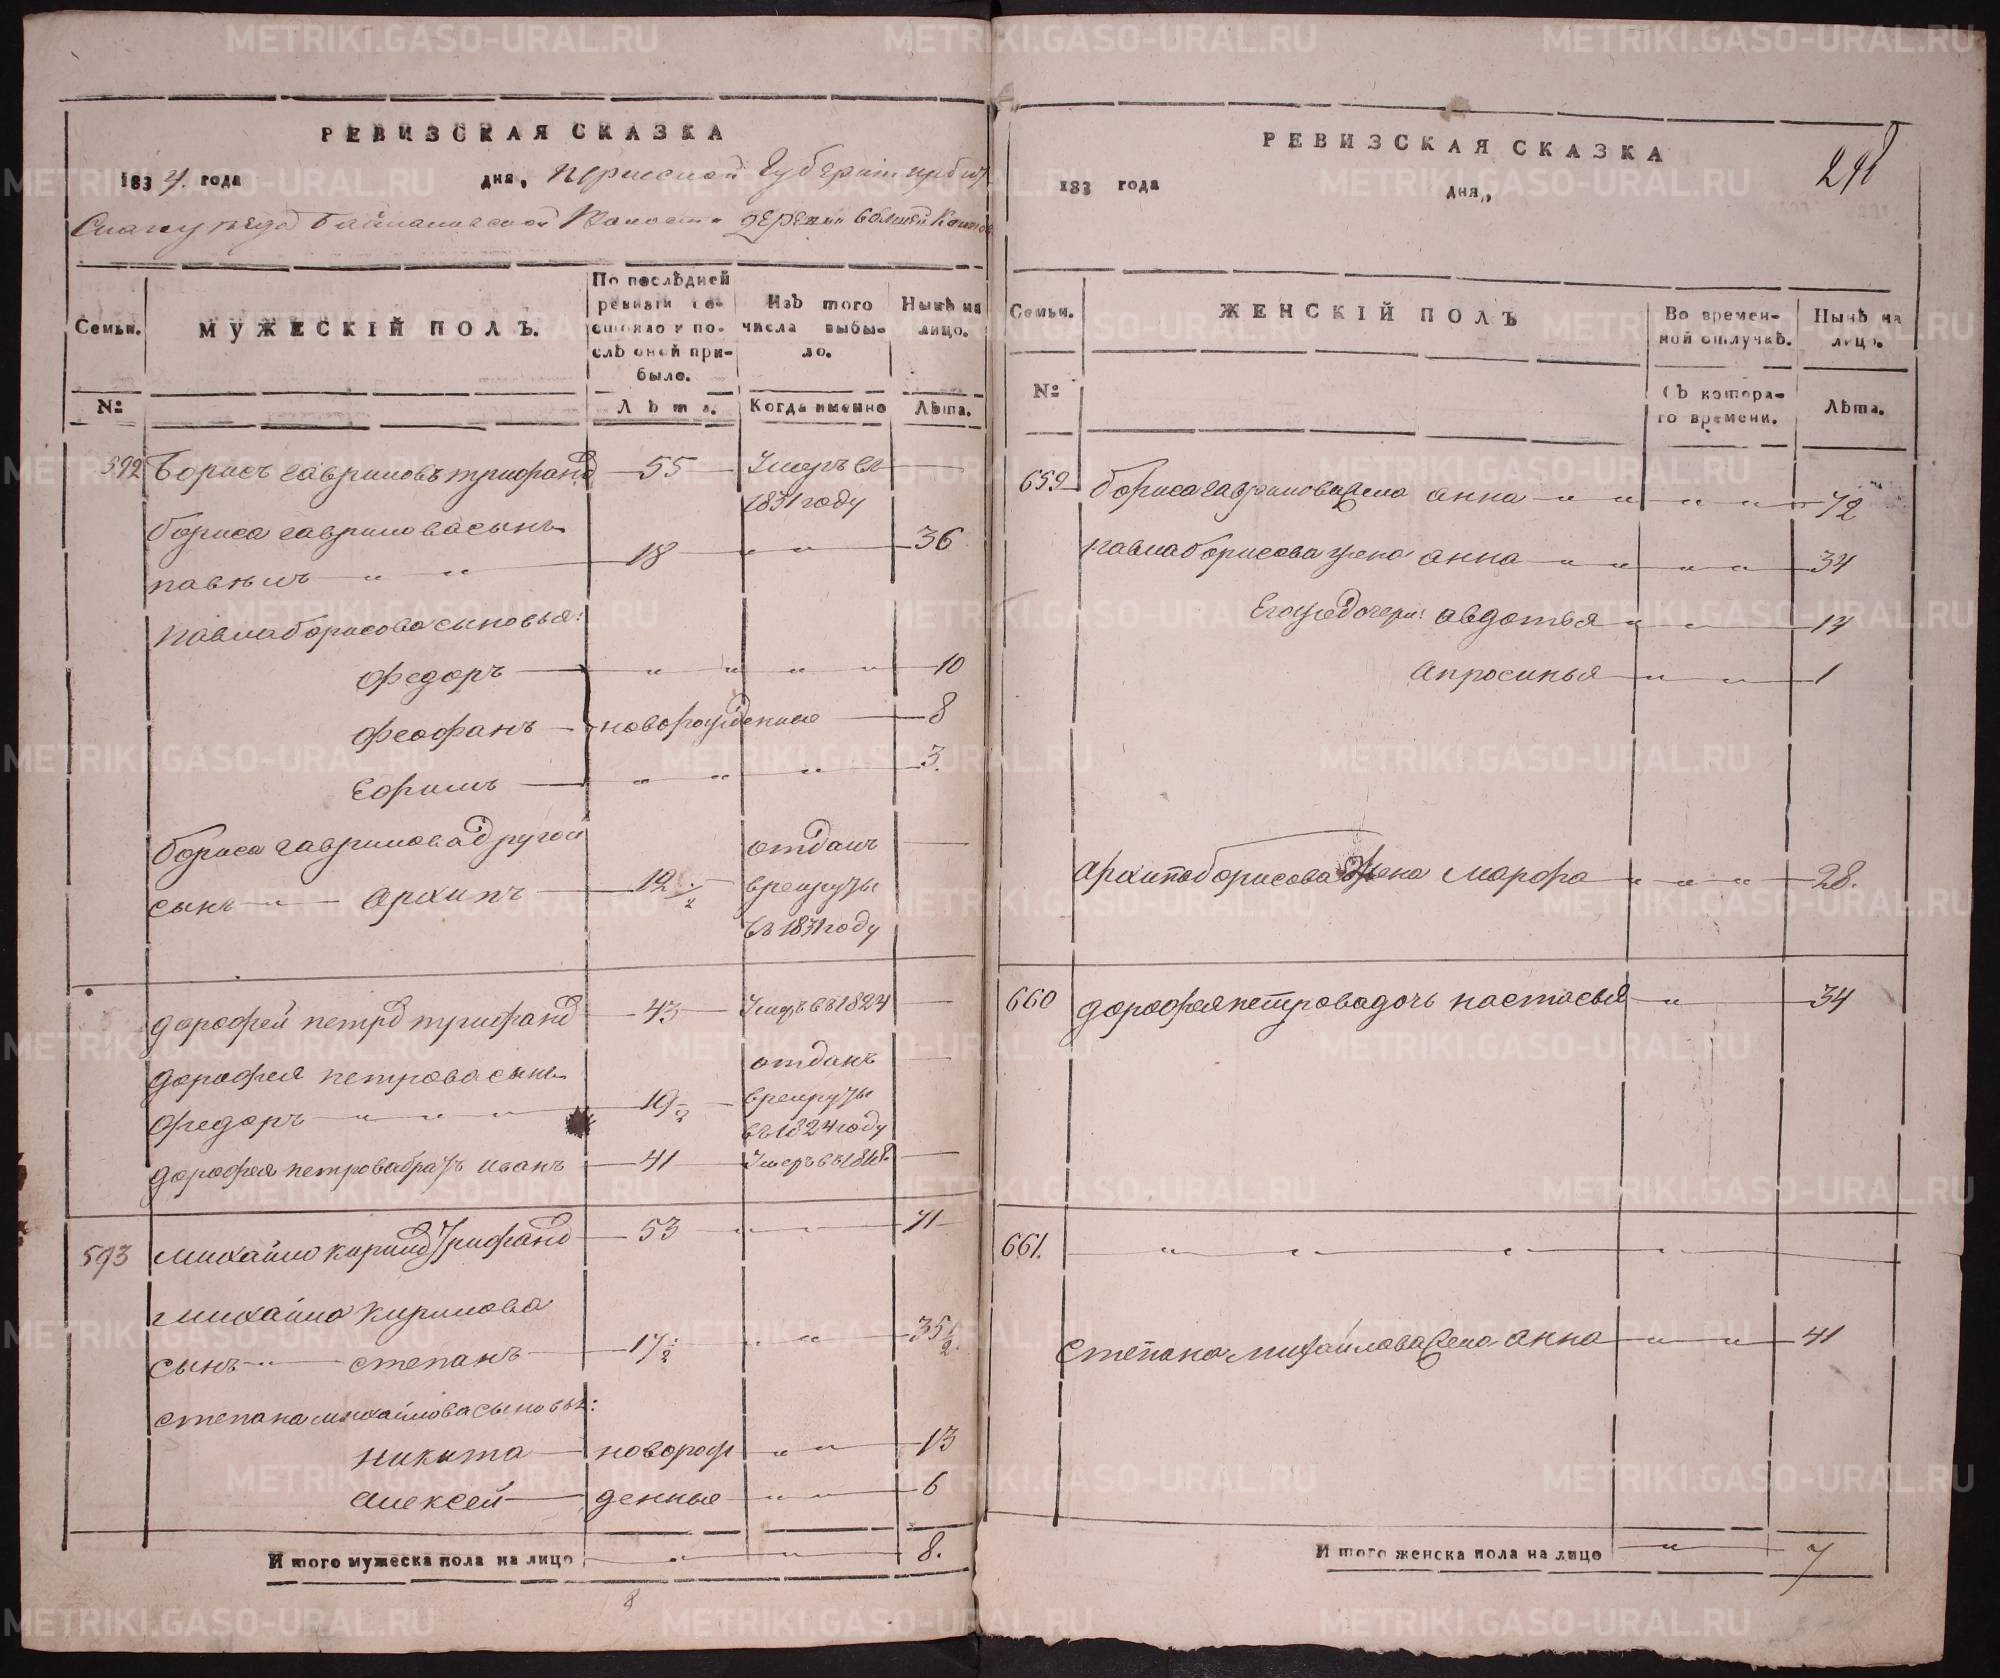 РЕВИЗСКАЯ СКАЗКА
1834. года дня, пермской губернии ирбит
скаго уезда волости деревни большей
Семьи.
МУЖЕСКІЙ ПОЛЪ.
По послѣдней ревизіи со-
стояло и по-
слѣ оной при-
было.
Изъ того
числа выбы-
ло.
Нынѣ на
лицо.
№
Лѣта.
Когда именно
Лѣта.
592 Борисъ гавриловъ трифанов 55 Умеръ въ
1831 году
бориса гаврилова сынъ
павелъ 18 36
павла борисова сыновья:
федоръ 10
феофанъ новорожденные 8
Ефимъ 3.
бориса гаврилова другой отданъ
сынъ архипъ 12 1/2 врекруты
въ 1831 году
дорофей петров трифанов 43 Умеръ въ 1824
дорофея петрова сынъ отданъ
федоръ 19 1/2 врекруты
въ 1824 году
дорофея петрова братъ иванъ 41 Умеръ въ 1818.
593 михайло кирилов Трифанов 53 71
михайла кирилова
сынъ степанъ 17 1/2 35 1/2.
степана михайлова сыновья:
никита новорож 13
алексей денные 6
Итого мужеска пола на лицо 8.
8
РЕВИЗСКАЯ СКАЗКА
183 года дня,
Семьи.
ЖЕНСКІЙ ПОЛЪ
Во времен-
ной отлучкѣ.
Нынѣ на
лицо.
№
Съ котора-
го времени.
Лѣта.
659 бориса гаврилова жена анна 72
павла борисова жена анна 34
Егоже дочери: авдотья 14
апросинья 1
архипа борисова жена марфа 28.
660 дорофея петрова дочь настасья 34
661.
степана михайлова жена анна 41
Итого женска пола на лицо 7
METRIKI.GASO-URAL.RU